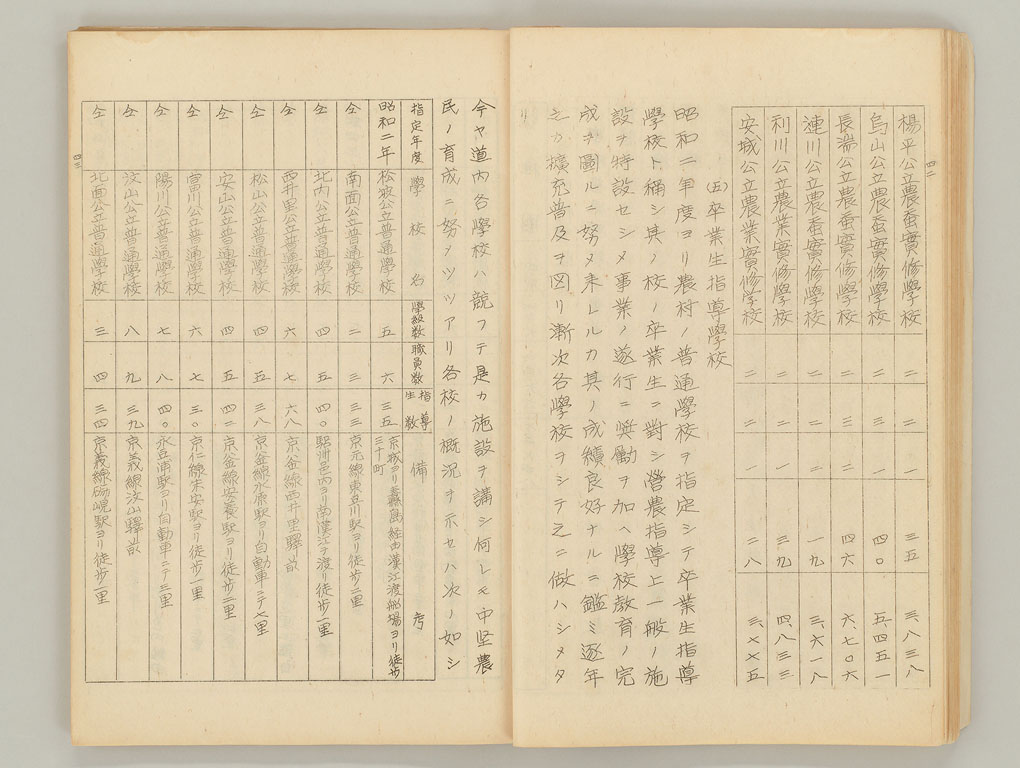 四二
楊平公立農蚕實修學校 二 二 一 三五 三、八三八
烏山公立農蚕實修學校 二 三 一 四〇 五、四五一
長湍公立農蚕實修學校 二 三 二 四六 六、七〇六
漣川公立農蚕實修學校 二 二 一 一九 三、六一八
利川公立農業實修學校 二 二 一 三九 四、八三三
安城公立農業實修学校 二 二 一 二八 三、七七五
(五)卒業生指導學校
昭和二年度ヨリ農村ノ普通學校ヲ指定シテ卒業生指導
學校ト稱シ其ノ校ノ卒業生ニ對シ營農指導上一般ノ施
設ヲ特設セシメ事業ノ遂行ニ奬勵ヲ加ヘ學校教育ノ完
成ヲ圖ルニ努メ来レルカ其ノ成績良好ナルニ鑑ミ逐年
之カ擴充普及ヲ図リ漸次各學校ヲシテ之ニ倣ハシメタ
リ
今ヤ道内各學校ハ競フテ是カ施設ヲ講シ何レモ中坚農
民ノ育成ニ努メツツアリ各校ノ概況ヲ示セハ次ノ如シ
指定年度 學校名 學級数 職員数 指導生数 備考
昭和二年 松坡公立普通學校 五 六 三五 京城ヨリ纛島経由漢江渡船場ヨリ徒歩三十町
仝 南面公立普通學校 二 三 三三 京元線東豆川駅ヨリ徒歩二里
仝 北内公立普通學校 四 五 四〇 驪州邑内ヨリ南漢江ヲ渡リ徒歩一里
仝 西井里公立普通學校 六 七 六八 京釜線西井里驛前
仝 松山公立普通學校 四 五 三八 京釜線水原駅ヨリ自動車ニテ七里
仝 安山公立普通學校 四 五 四二 京釜線安養駅ヨリ徒歩二里
仝 富川公立普通學校 六 七 三〇 京仁線朱安駅ヨリ徒歩一里
仝 陽川公立普通學校 七 八 四〇 永登浦駅ヨリ自動車ニテ三里
仝 汶山公立普通學校 八 九 三九 京義線汶山驛前
仝 北面公立普通學校 三 四 三四 京義線 駅ヨリ徒歩一里
四三